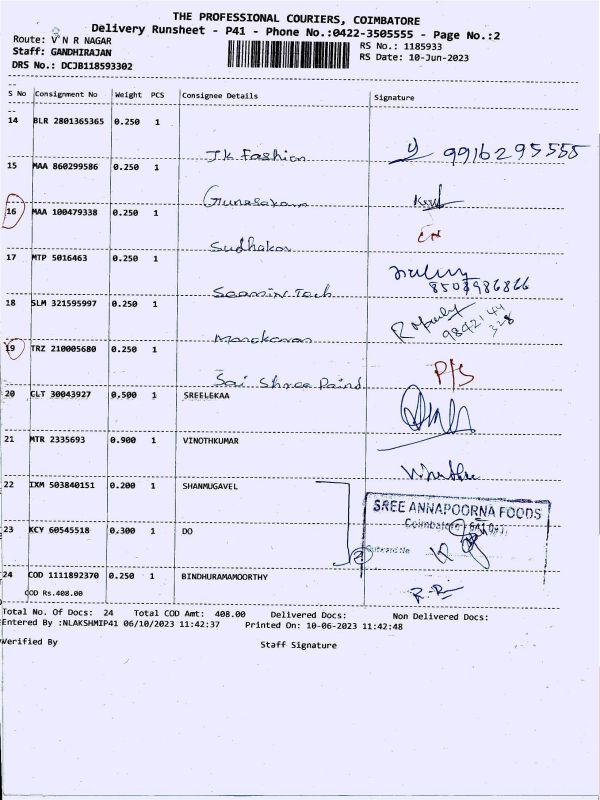 THE PROFESSIONAL COURIERS, COIMBATORE
Delivery Runsheet - P41 - Phone No.:0422-3505555 - Page No.:2
Route: V N R NAGAR
RS No.: 1185933
Staff: GANDHIRAJAN
RS Date: 10-Jun-2023
DRS No.: DCJB118593302
S No Consignment No Weight PCS Consignee Details Signature
14 BLR 2801365365 0.250 1
Jk Fashion 9916295555
15 MAA 860299586 0.250 1
Gunasakaran
16 MAA 100479338 0.250 1
Sudhakar
17 MTP 5016463 0.250 1
8508986866
18 SLM 321595997 0.250 1
Manokaran 9842144
328
19 TRZ 210005680 0.250 1
Sai Shree Paind P/S
20 CLT 30043927 0.500 1 SREELEKAA
21 MTR 2335693 0.900 1 VINOTHKUMAR
22 IXM 503840151 0.200 1 SHANMUGAVEL
SREE ANNAPOORNA FOODS
Coimbatore
23 KCY 60545518 0.300 1 DO
24 COD 1111892370 0.250 1 BINDHURAMAMOORTHY
COD Rs.408.00
Total No. Of Docs: 24 Total COD Amt: 408.00 Delivered Docs: Non Delivered Docs:
Entered By :NLAKSHMIP41 06/10/2023 11:42:37 Printed On: 10-06-2023 11:42:48
Verified By Staff Signature